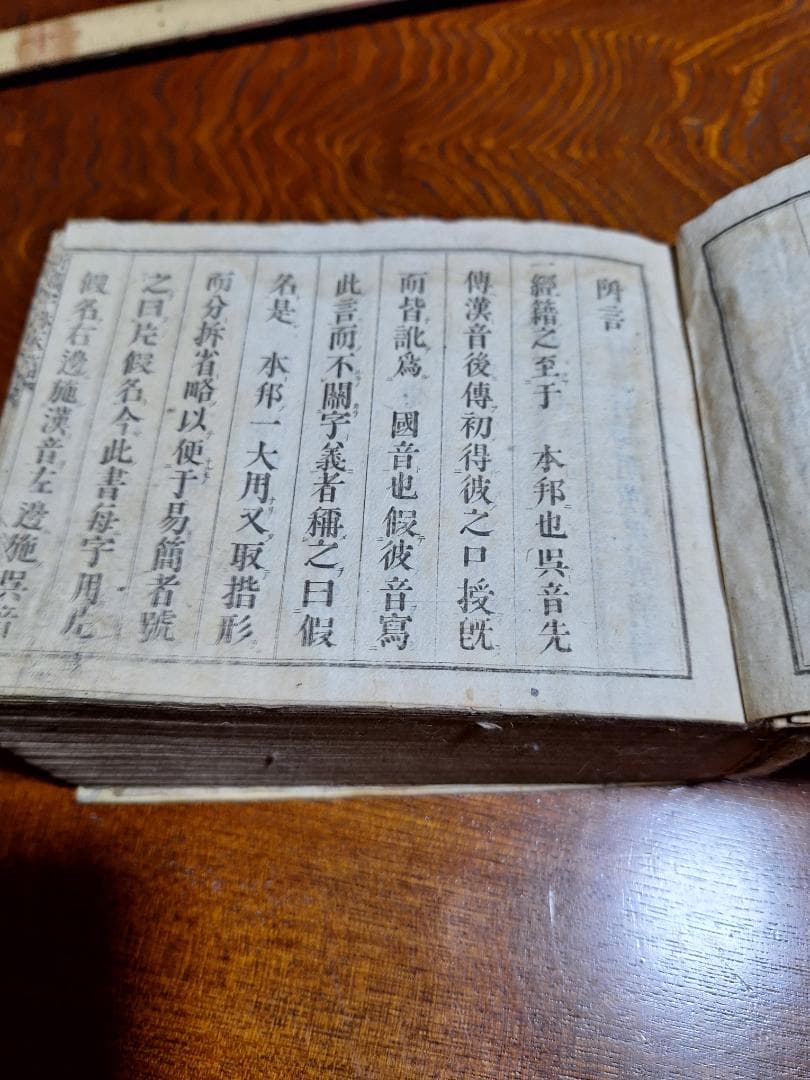 附言
一經籍之至于 本邦也吳音先
傳漢音後傳初得彼之口授旣
而皆訛爲 國音也假彼音寫
此言而不關字義者稱之曰假
名是 本邦一大用又取楷形
而分拆省略以便于易簡者號
之曰片假名今此書每字用片
假名右邊施漢音左邊施吳音